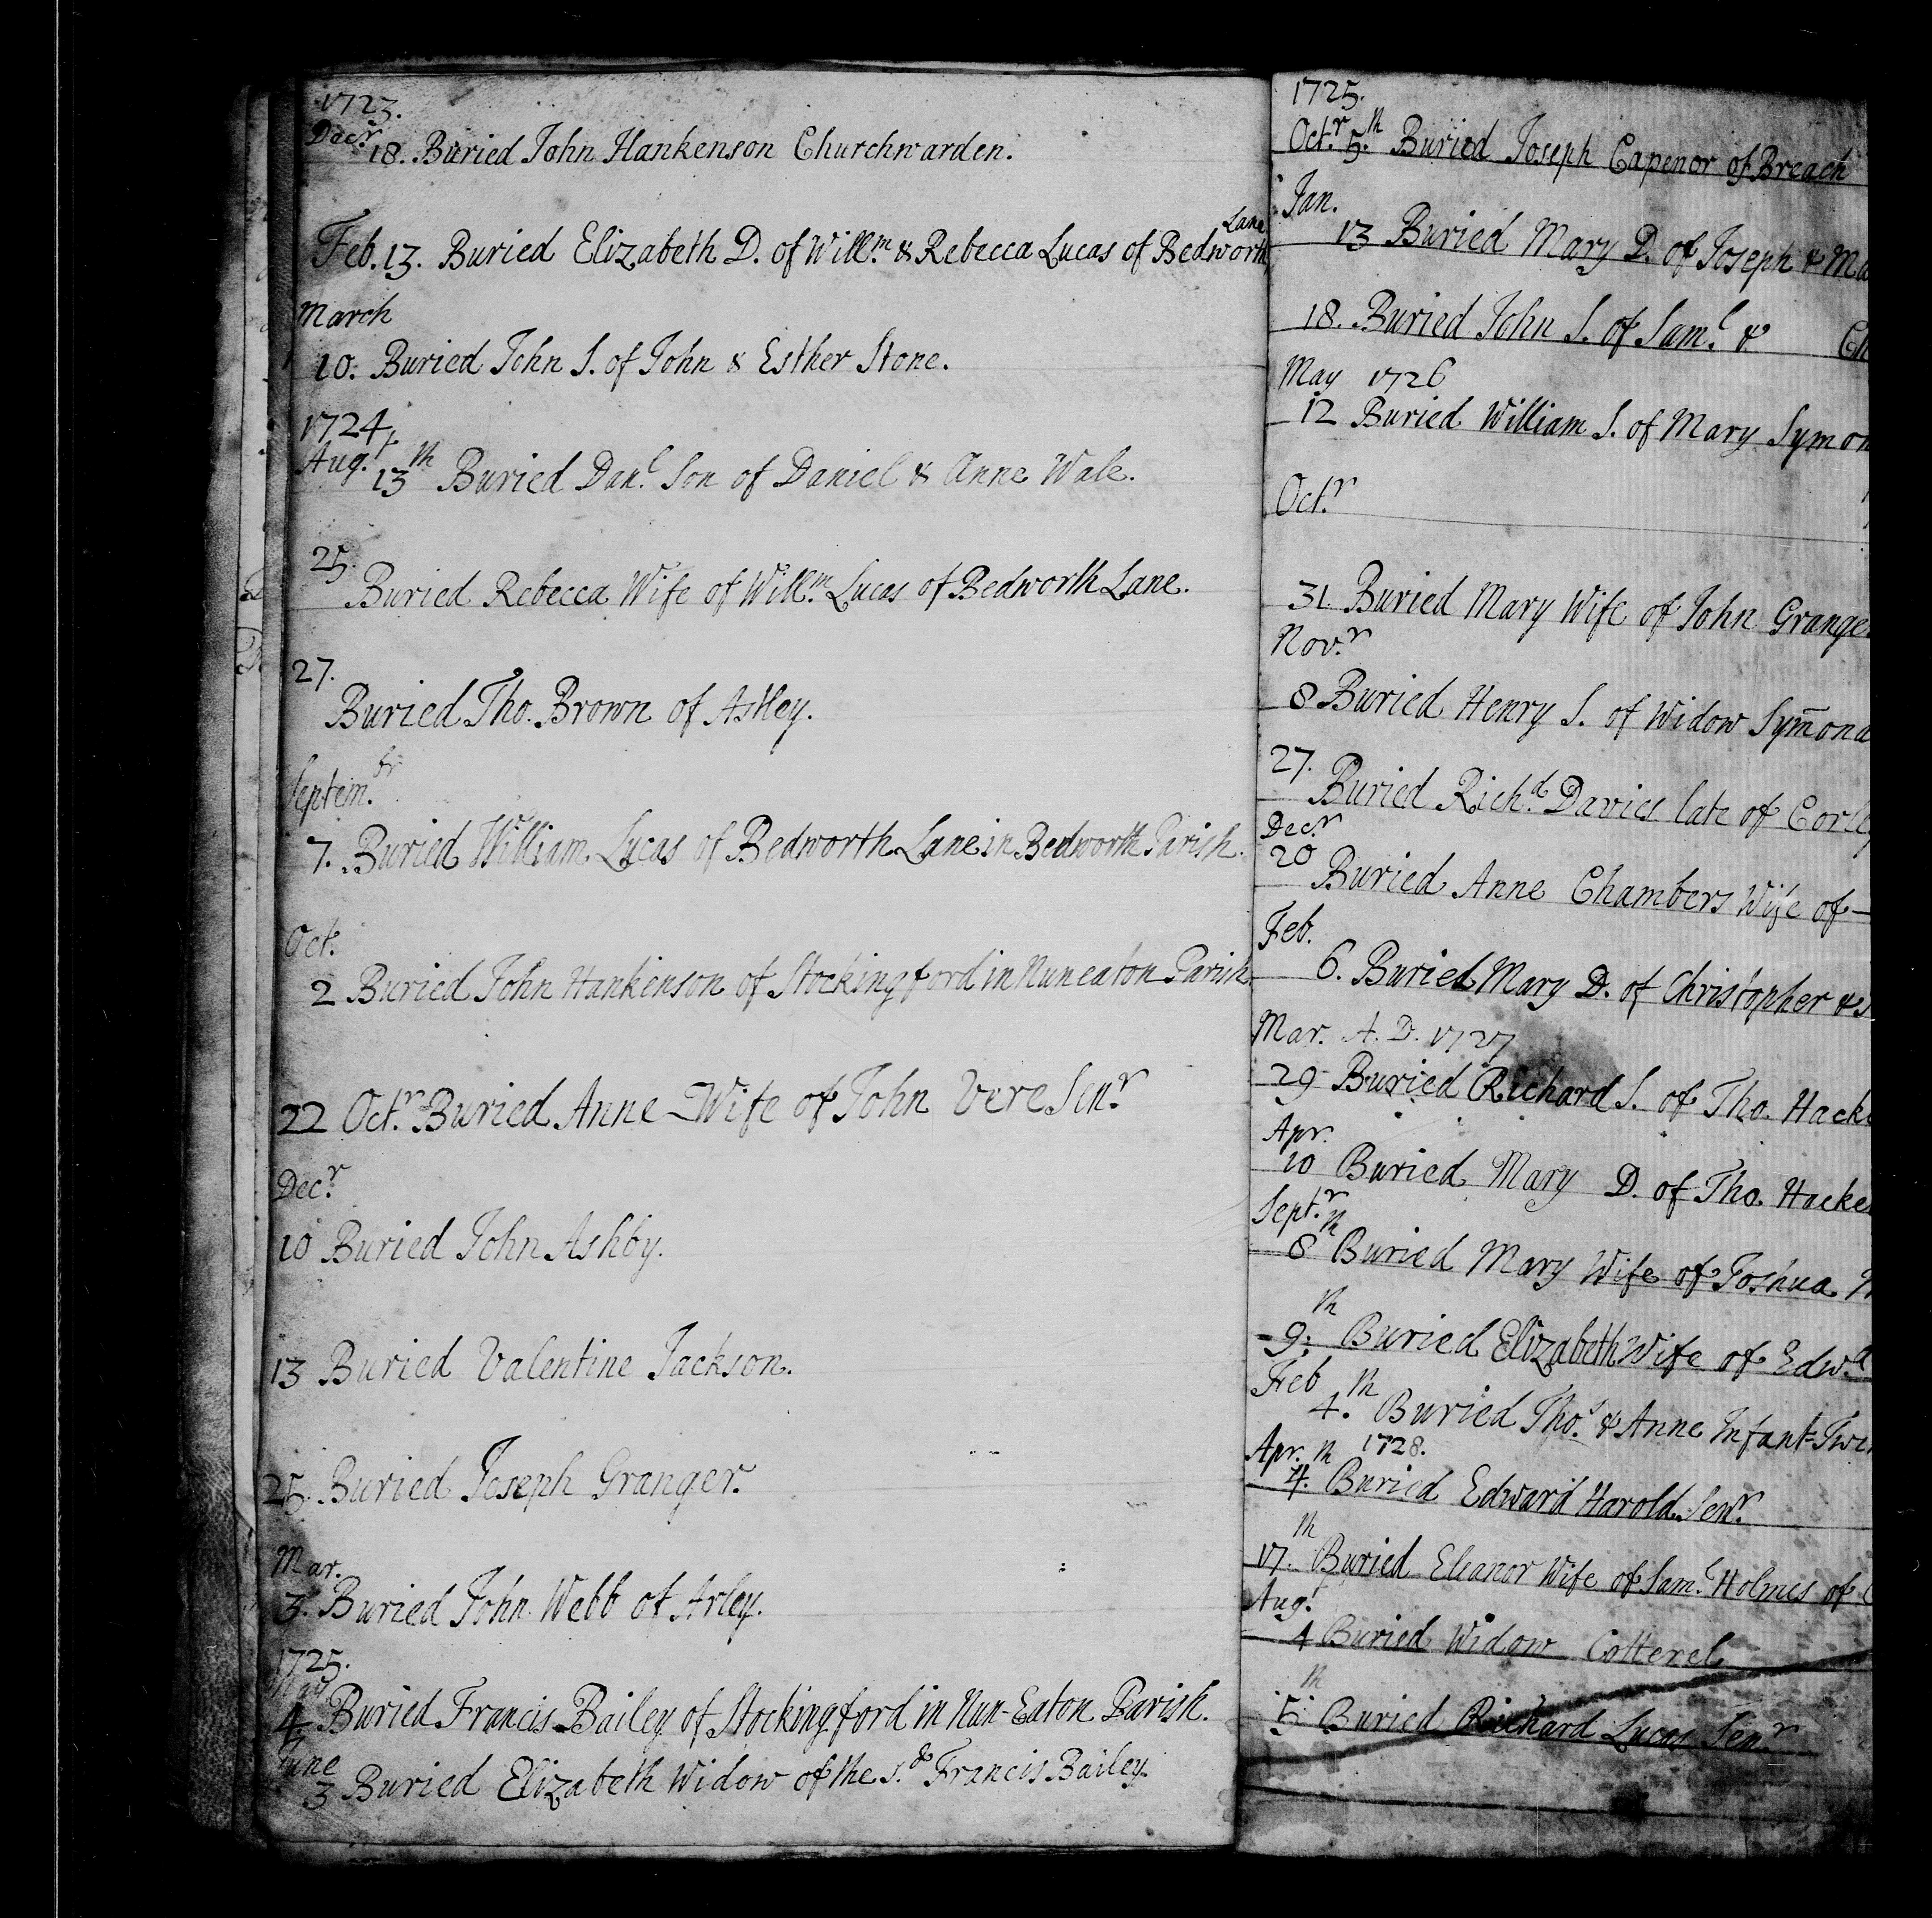 1723.
Decr. 18. Buried John Hankenson Churchwarden.
Lane
Feb. 13. Buried Elizabeth D. of Willm. & Rebecca Lucas of Bedworth
March
10. Buried John S. of John & Esther Stone.
1724,
Augt. 13th Buried Danl. Son of Daniel & Anne Wale.
25.
Buried Rebecca Wife of Willm. Lucas of Bedworth Lane.
27.
Buried Tho. Brown of Astley.
Septem.br
7. Buried William Lucas of Bedworth Lane in Bedworth Parish.
Oct.
2 Buried John Hankinson of Stockingford in Nuneaton Parish
22 Octr. Buried Anne Wife of John Vere Senr.
Decr.
10 Buried John Ashby.
13 Buried Valentine Jackson.
25. Buried Joseph Granger.
Mar.
3. Buried John Webb of Arley.
1725.
4 Buried Francis Bailey of Stockingford in Nun-Eaton Parish.
June
3 Buried Elizabeth Widow of the s.d Francis Bailey.
1725.
Octr. 5th. Buried Joseph Capenor of Breach
Jan.
13 Buried Mary D. of Joseph & Ma
18. Buried John S. of Saml. & Ch
May 1726
12 Buried William S. of Mary Symon
Octr.
31. Buried Mary Wife of John Grange
Novr.
8 Buried Henry S. of Widow Sym̄ond
27.
Buried Richd. Davies late of Corley
Decr.
20 Buried Anne Chambers Wife of —
Feb.
6. Buried Mary D. of Christopher &
Mar. A. D. 1727
29 Buried Richard S. of Tho. Hack
Apr.
10 Buried Mary D. of Tho. Hacke
Septr.
8th Buried Mary Wife of Joshua
9th. Buried Elizabeth Wife of Edwd.
Feb
4th. Buried Thos. & Anne Infant-Twi
Apr. 1728.
4th. Buried Edward Harold Senr.
17th. Buried Eleanor Wife of Saml. Holmes of
Augt.
4 Buried Widow Cotterel
5th Buried Richard Lucas Senr.